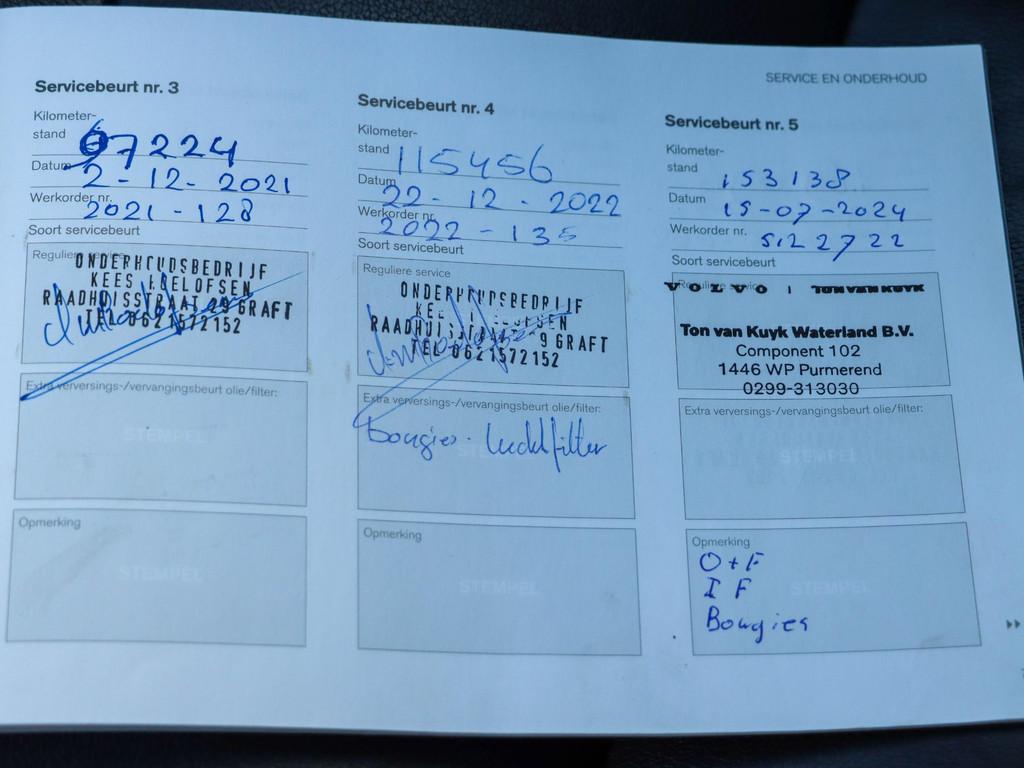 SERVICE EN ONDERHOUD
Servicebeurt nr. 3
Kilometer-
stand 67224
Datum 2-12-2021
Werkorder nr. 2021-128
Soort servicebeurt
Reguliere service
ONDERHOUDSBEDRIJF
KEES ROELOFSEN
RAADHUISSTRAAT 29 GRAFT
TEL 0621572152
Extra verversings-/vervangingsbeurt olie/filter:
STEMPEL
Opmerking
STEMPEL
Servicebeurt nr. 4
Kilometer-
stand 115456
Datum 22-12-2022
Werkorder nr. 2022-135
Soort servicebeurt
Reguliere service
ONDERHOUDSBEDRIJF
KEES ROELOFSEN
RAADHUISSTRAAT 29 GRAFT
TEL 0621572152
Extra verversings-/vervangingsbeurt olie/filter:
Bougies - luchtfilter
STEMPEL
Opmerking
STEMPEL
Servicebeurt nr. 5
Kilometer-
stand 153138
Datum 15-07-2024
Werkorder nr. 5122722
Soort servicebeurt
Reguliere service
VOLVO | TON VAN KUYK
Ton van Kuyk Waterland B.V.
Component 102
1446 WP Purmerend
0299-313030
Extra verversings-/vervangingsbeurt olie/filter:
STEMPEL
Opmerking
O+F
IF
Bougies
STEMPEL